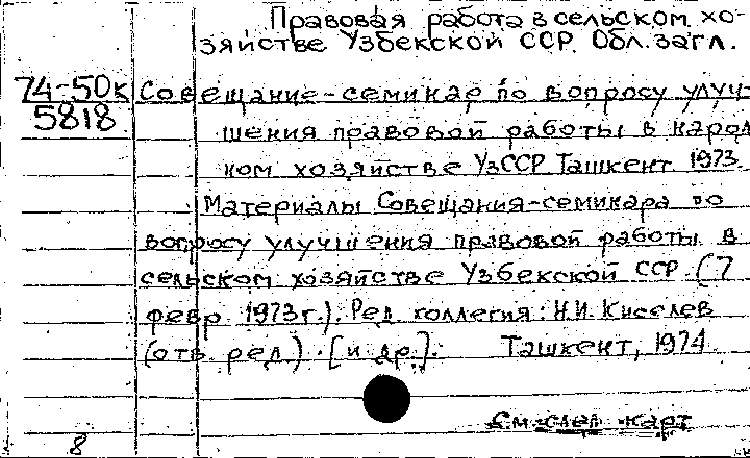 Правовая работа в сельском хо-
зяйстве Узбекской ССР. Обл. загл.
74-50к Совещание-семинар по вопросу улуч-
5818
шения правовой работы в народ
ном хозяйстве УзССР Ташкент 1973.
Материалы Совещания-семинара по
вопросу улучшения правовой работы в
сельском хозяйстве Узбекской ССР (7
февр 1973г.). Ред коллегия: Н.И. Киселев
(отв. ред.). [и др.]. Ташкент, 1974
См след карт
8